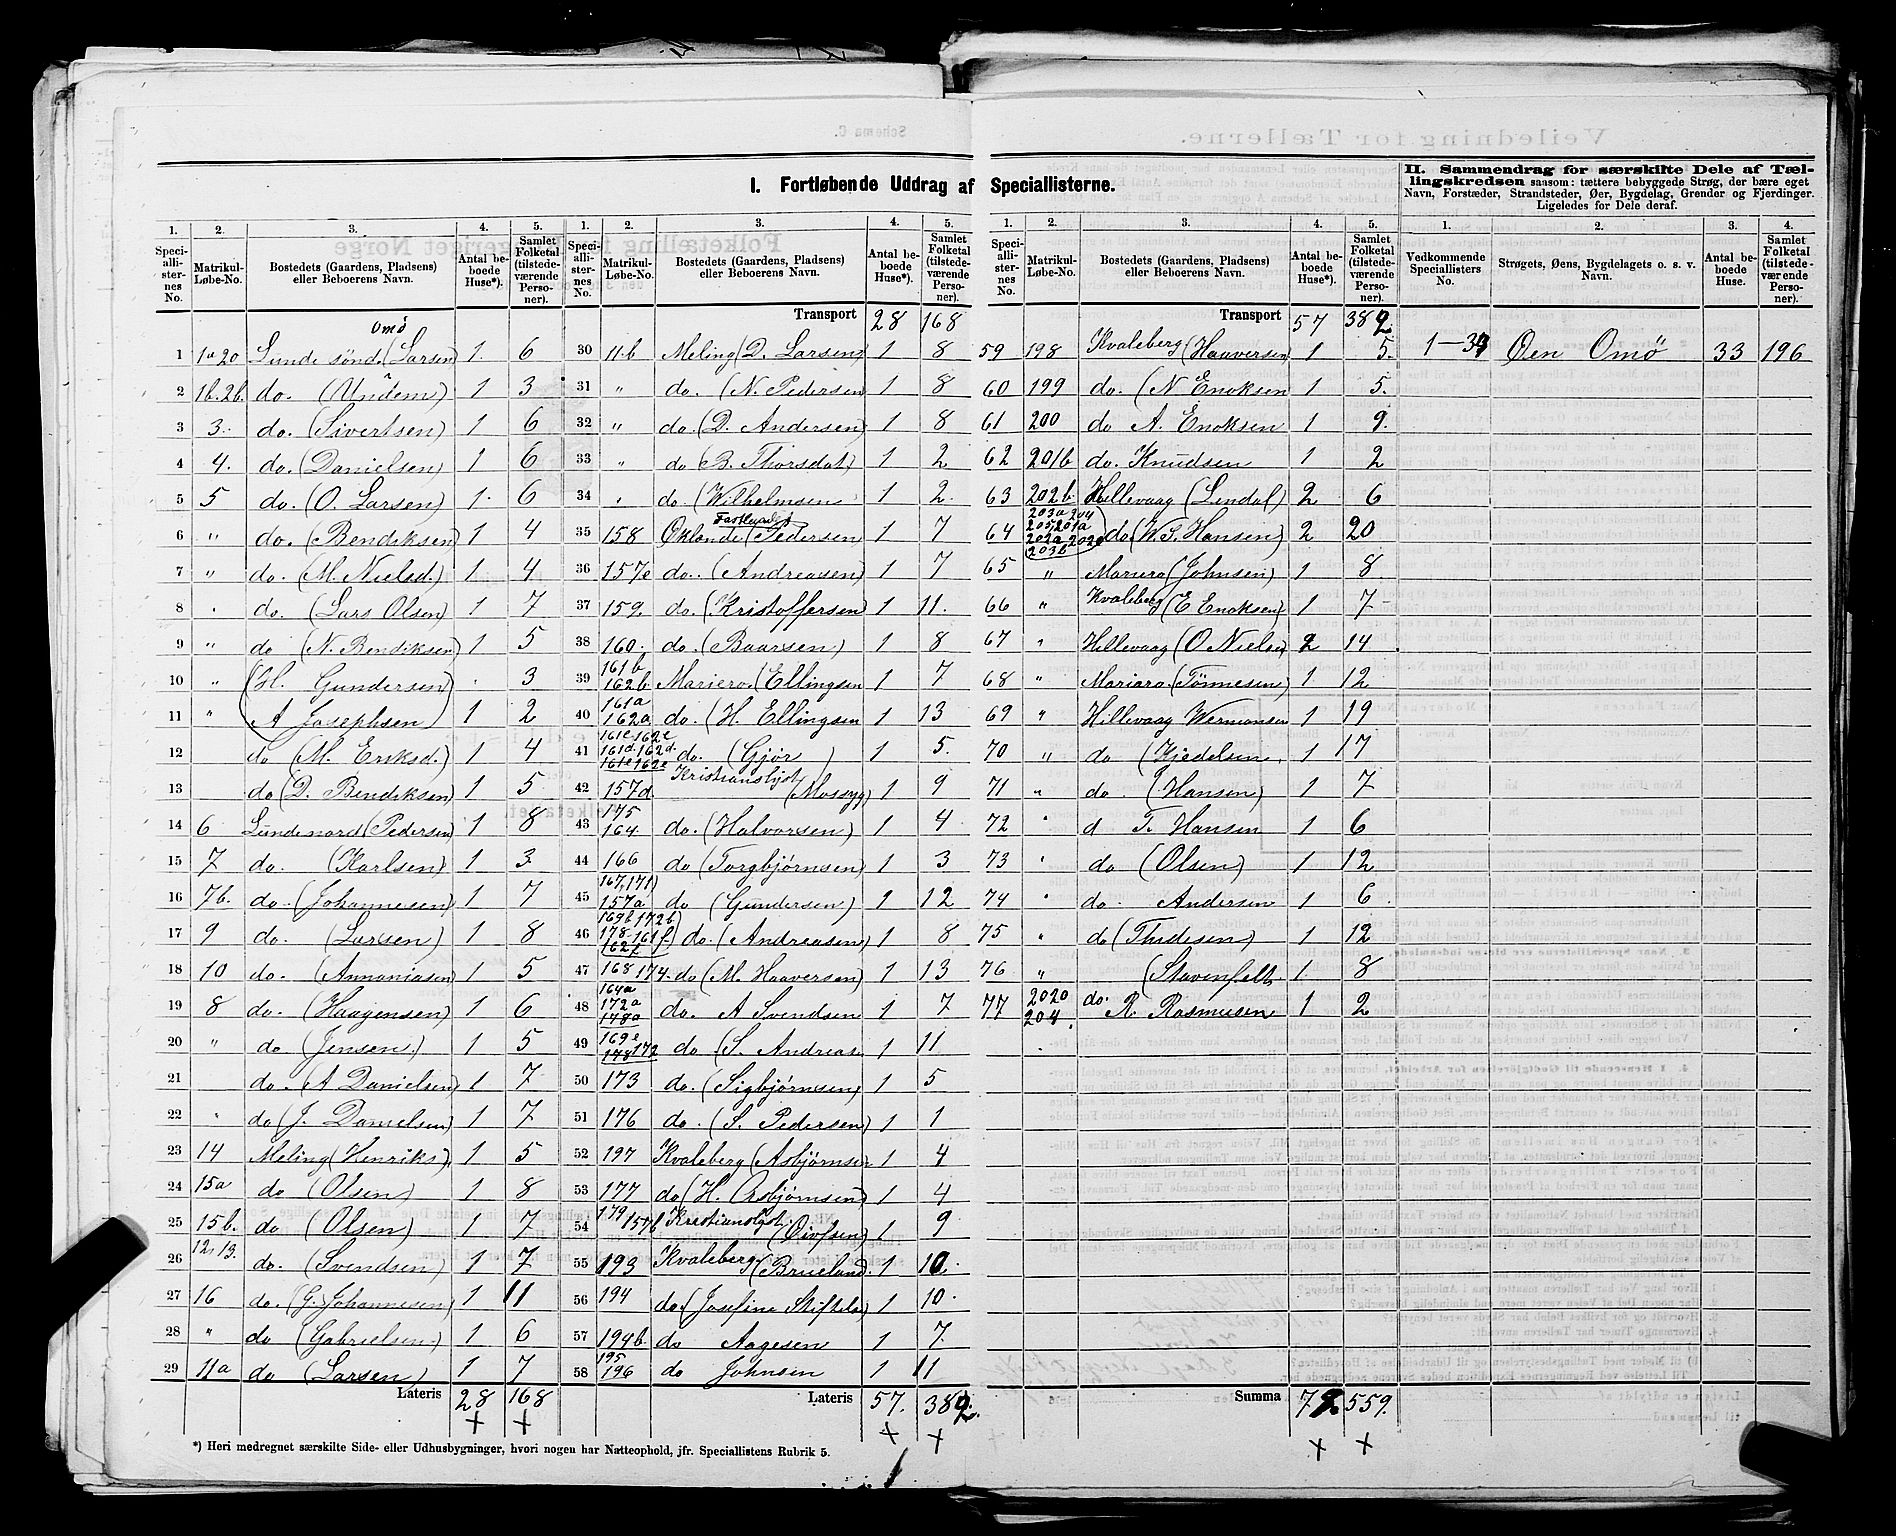 I. Fortløbende Uddrag af Speciallisterne.
II. Sammendrag for særskilte Dele af Tællingskredsen saasom: tættere bebyggede Strøg, der bære eget Navn, Forstæder, Strandsteder, Øer, Bygdelag, Grender og Fjerdinger. Ligeledes for Dele deraf.
1. 2. 3. 4. 5.
Speciallisternes No. Matrikul-Løbe-No. Bostedets (Gaardens, Pladsens) eller Beboerens Navn. Antal beboede Huse*). Samlet Folketal (tilstedeværende Personer).
Omö
1 1a 2a Lunde söndr (Larsen 1. 6
2 1b. 2b. do. (Undem) 1 3
3 3. do. (Sivertsen) 1 6
4 4. do. (Danielsen) 1 6
5 5 do. (O. Larsen) 1. 6
6 " do. (Bendiksen) 1 4
7 " do. (M. Nielsd.) 1. 4
8 " do. (Lars Olsen) 1 7
9 " do (N. Bendiksen 1 5
10 " (H. Gundersen) 3
11 " A Josephsen) 1 2
12 do (M. Eriksd.) 1 4
13 do (D. Bendiksen) 1 5
14 6 Lundenord (Pedersen) 1 8
15 7 do. (Karlsen) 1 3
16 7b. do. (Johannesen) 1 7
17 9 do. (Larsen) 1 8
18 10 do. (Annaniasen) 1 5
19 8 do. (Haagensen) 1 6
20 " do (Jensen.) 1 5
21 do. (A Danielsen) 1 7
22 " do (J. Danielsen) 1 7
23 14 Meling (Henriks). 1 5
24 15a do (Olsen) 1 8
25 15b. do (Olsen) 1 7
26 12, 13. do. (Svendsen) 1 7
27 16 do. (G. Johannesen) 1 11
28 " do (Gabrielsen) 1 6
29 11a do (Larsen) 1 7
Lateris 28 168
1. 2. 3. 4. 5.
Speciallisternes No. Matrikul-Løbe-No. Bostedets (Gaardens, Pladsens) eller Beboerens Navn. Antal beboede Huse*). Samlet Folketal (tilstedeværende Personer).
Transport 28 168
30 11b Meling (D. Larsen) 1 8
31 " do. (N. Pedersen 1 8
32 " do. (D. Andersen) 1 8
33 " do (B. Thorsdat) 1 2
34 " do. (Wilhelmsen 1 2.
35 158 (Pedersen 1 7
36 157e do.. (Andreasen) 1 7
37 159. do. (Kristoffersen 1 11.
38 160. do. (Baarsen) 1 8
39 161b 162b. Mariero. (Ellingsen 1 7
40 161a 162a do. (H. Ellingsen 1 13
41 161d. 162d. do. (Gjör) 1 5.
42 157d (Mossyg) 1 9
43 175 164. do. (Halvorsen) 1 4
44 166 do (Torgbjørnsen) 1 3
45 167, 171) 157a do (Gundersen) 1 12
46 169b. 172b 178. 161f. 162f do. (Andreasen) 1 8
47 168 174. do (M. Haaversen) 1 13
48 164a 172a 178a do. A Svendsen 1 7
49 169e 178 172 do (S. Andreas. 1 11
50 173 do. (Sigbjørnsen) 1 5
51 176 do. (S. Pedersen) 1 1
52 197 Kvaleberg (Asbjørnsen 1 4
53 177 do (H. Asbjørnsen) 1 4
54 179 157b 1 9
55 193 Kvaleberg (Brueland. 1 10.
56 194 do. (Josefine 1 10.
57 194b. do Aagesen 1 7.
58 195 196 do Johnsen 1 11
Lateris 57. 382.
1. 2. 3. 4. 5.
Speciallisternes No. Matrikul-Løbe-No. Bostedets (Gaardens, Pladsens) eller Beboerens Navn. Antal beboede Huse*). Samlet Folketal (tilstedeværende Personer).
Transport 57 382
59 198 Kvaleberg (Haaversen) 1 5.
60 199 do. (N Enoksen 1 5.
61 200 do A. Enoksen 1 9.
62 201b do. Knudsen 1 2
63 202b. Hillevaag (Lindal) 2 6
64 203a 204 205, 201a 202a, 202c 203b do. (W. S. Hansen) 2 20
65 " Mariero (Johnsen) 1 8
66 " Kvaleberg (E Enoksen) 1 7
67 " Hillevaag (O Nielsen 2 14
68 " Mariero (Tönnesen) 1 12
69 " Hillevaag Wermansen 1 19
70 " do (Kjedelsen. 1 17
71 " do (Hansen) 1 7
72 " d T. Hansen 1 6
73 " do (Olsen) 1 12
74 " do. Andersen 1 6
75 " do (Thidesen) 1 12
76 " (Stavenfelt 1. 8
77 2020 204. do. R. Rasmusen 1 2
Summa 79. 559.
1. 2. 3. 4.
Vedkommende Speciallisters No. Strøgets, Øens, Bygdelagets o. s. v. Navn. Antal beboede Huse. Samlet Folketal (tilstedeværende Personer).
1—34 Öen Omö 33 196
*) Heri medregnet særskilte Side- eller Udhusbygninger, hvori nogen har Natteophold, jfr. Speciallistens Rubrik 5.